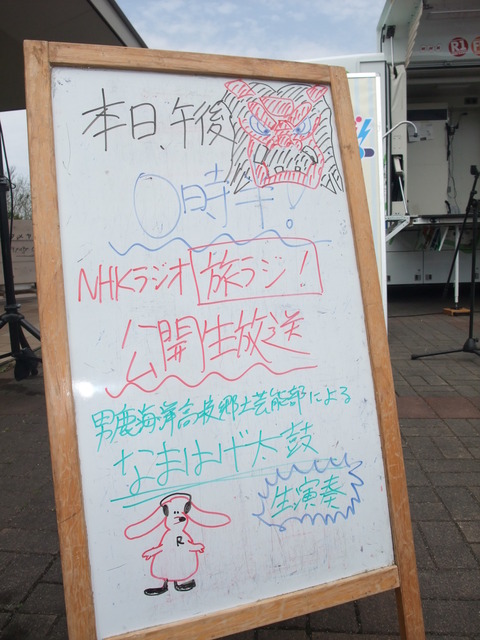 本日、午後
0時半!
NHKラジオ 旅ラジ!
公開生放送
男鹿海洋高校郷土芸能部による
なまはげ太鼓
生演奏
R
R1